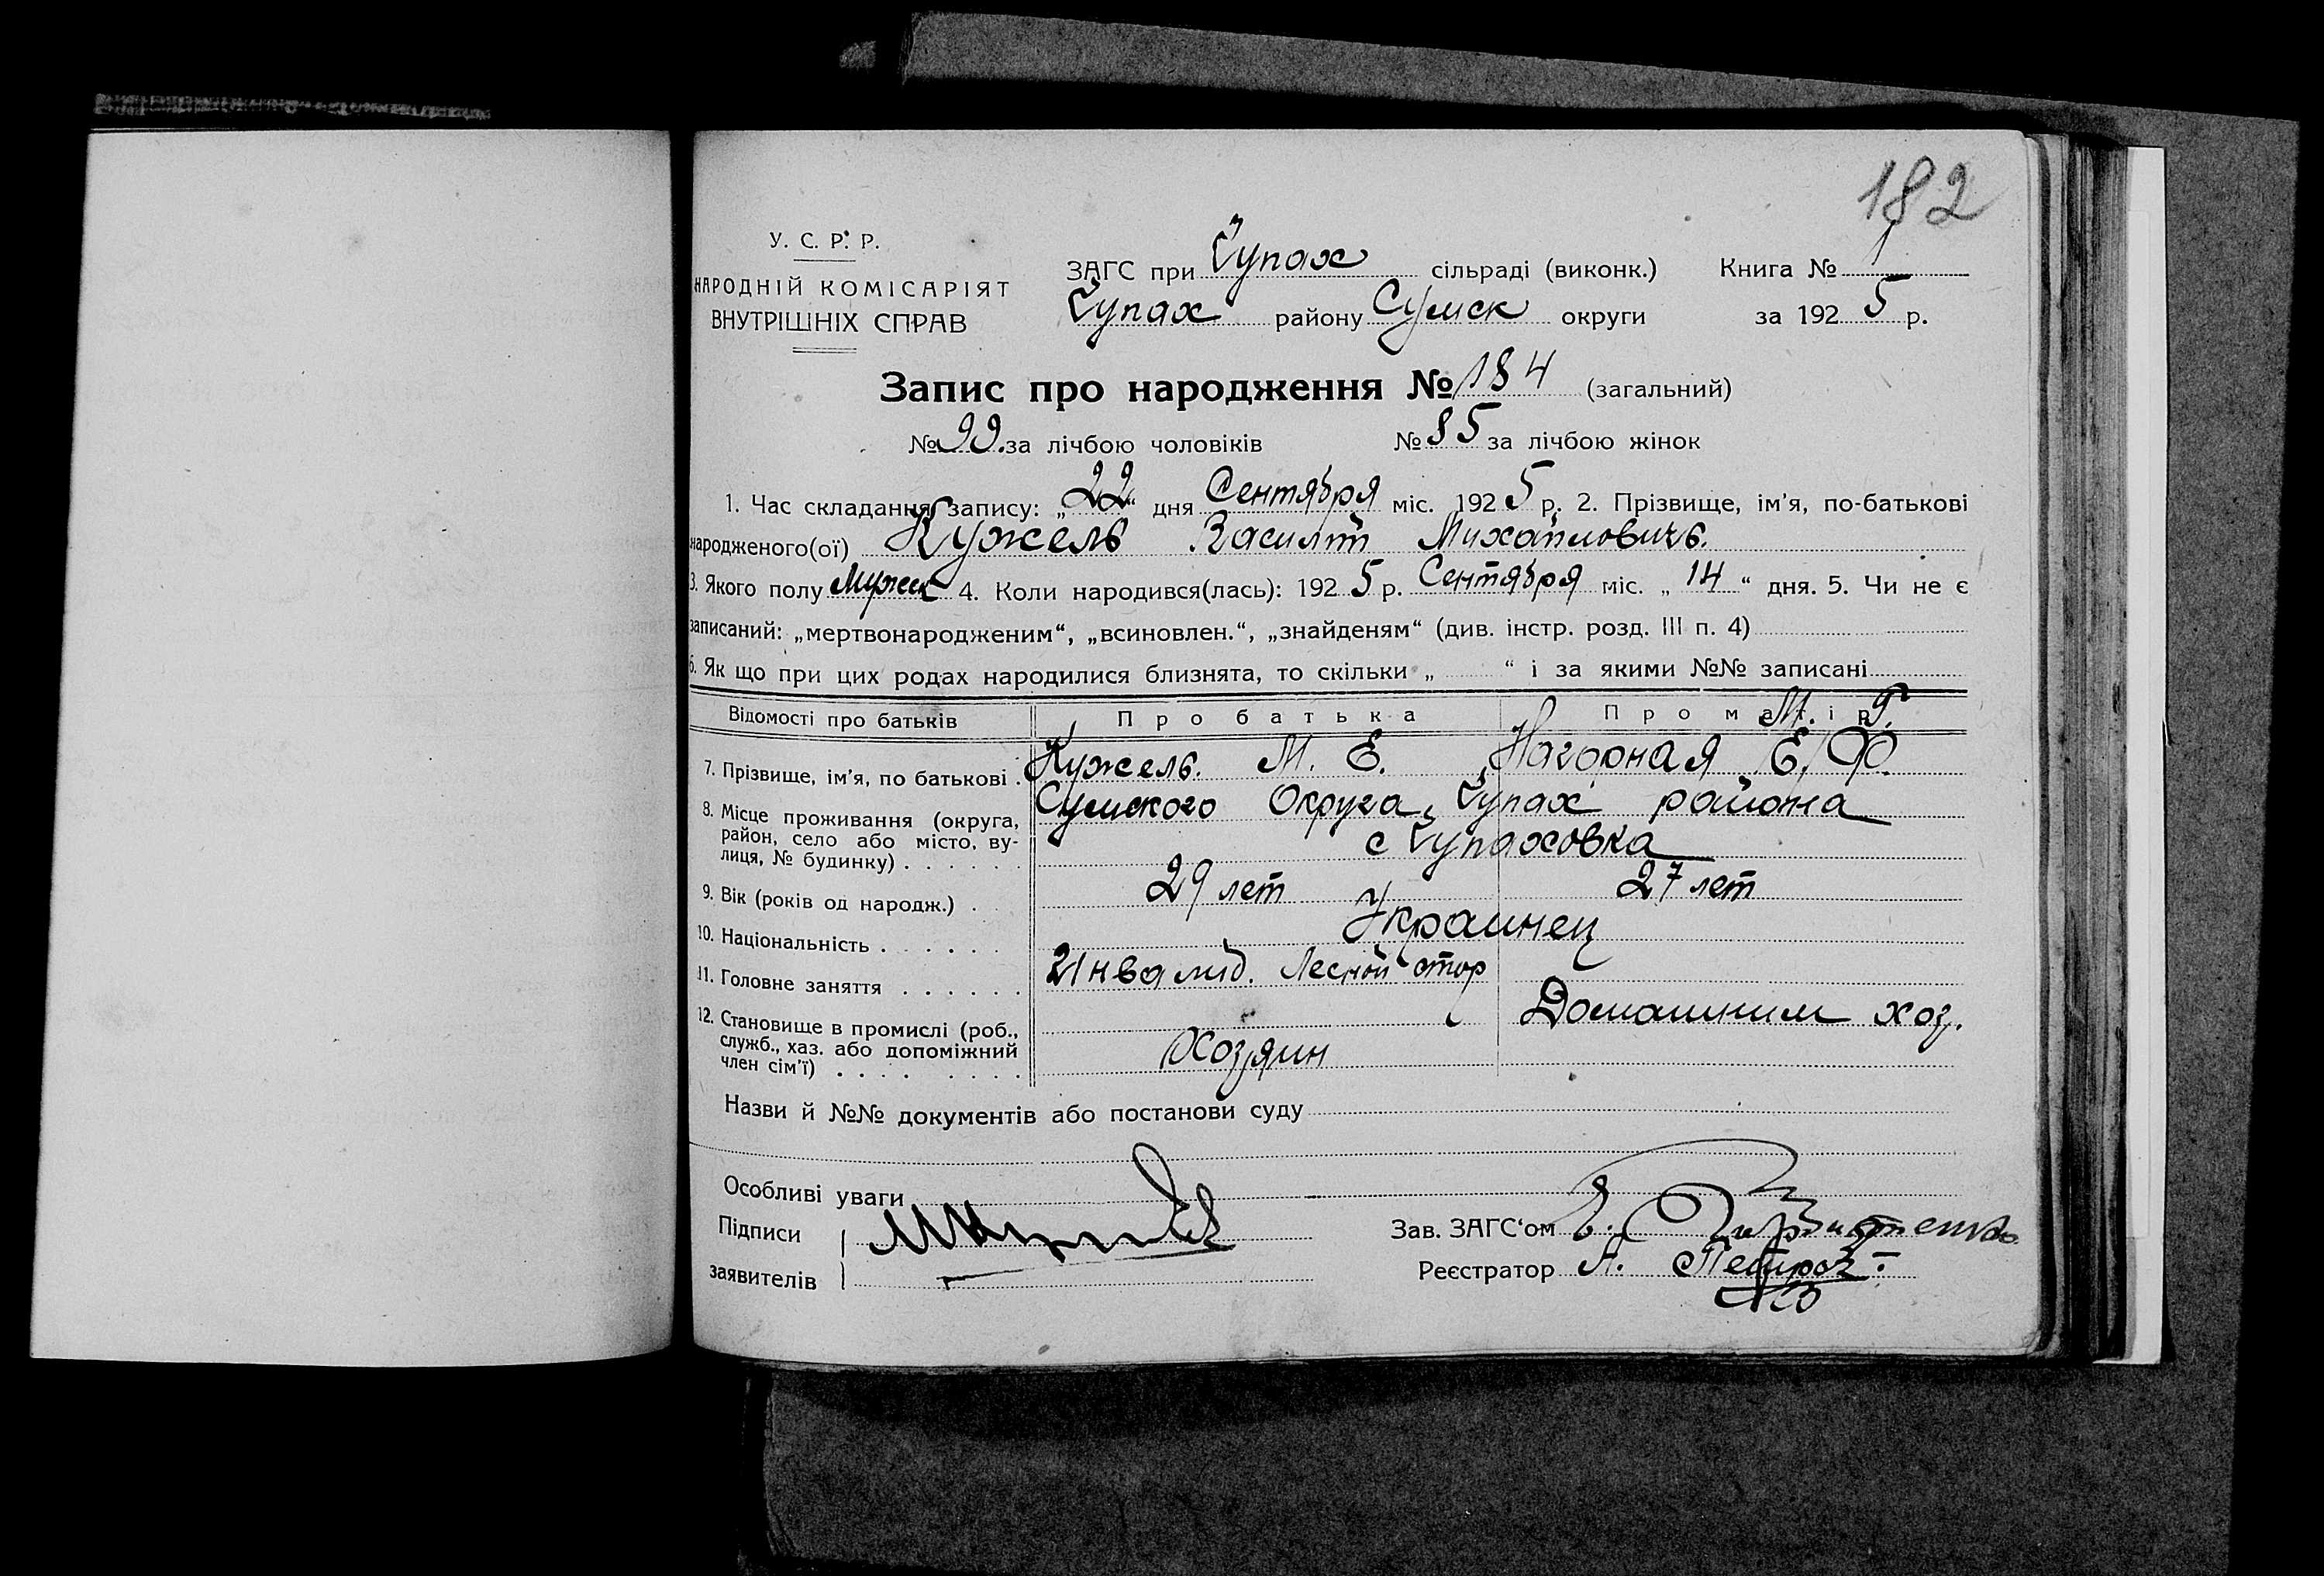 182
У. С. Р. Р.
НАРОДНІЙ КОМІСАРІЯТ
ВНУТРІШНІХ СПРАВ
ЗАГС при Чупах сільраді (виконк.) Книга № 1
Чупах району Сумск округи за 1925 р.
Запис про народження № 184 (загальний)
№ 99 за лічбою чоловіків № 85 за лічбою жінок
1. Час складання запису: „22“ дня Сентября міс. 1925 р. 2. Прізвище, ім'я, по-батькові
народженого(ої) Кужель Василий Михайлович.
3. Якого полу Мужск 4. Коли народився(лась): 1925 р. Сентября міс. „14“ дня. 5. Чи не є
записаний: „мертвонародженим“, „всиновлен.“, „знайденям“ (див. інстр. розд. III п. 4)
6. Як що при цих родах народилися близнята, то скільки „ “ і за якими №№ записані
Відомості про батьків Про батька Про матір
7. Прізвище, ім'я, по батькові . Кужель. М. Е. Нагорная Е. Ф.
8. Місце проживання (округа, район, село або місто, вулиця, № будинку) . . . . . Сумского Округа, Чупах района
с Чупаховка
9. Вік (років од народж.) . 29 лет 27 лет
10. Національність . . . . . . Украинец
11. Головне заняття . . . . . . Инвалид. Лесной стор
12. Становище в промислі (роб., служб., хаз. або допоміжний член сім'ї) . . . . . . . . Хозяин Домашним хоз.
Назви й №№ документів або постанови суду
Особливі уваги
Підписи
заявителів
Зав. ЗАГС'ом
Реєстратор А.